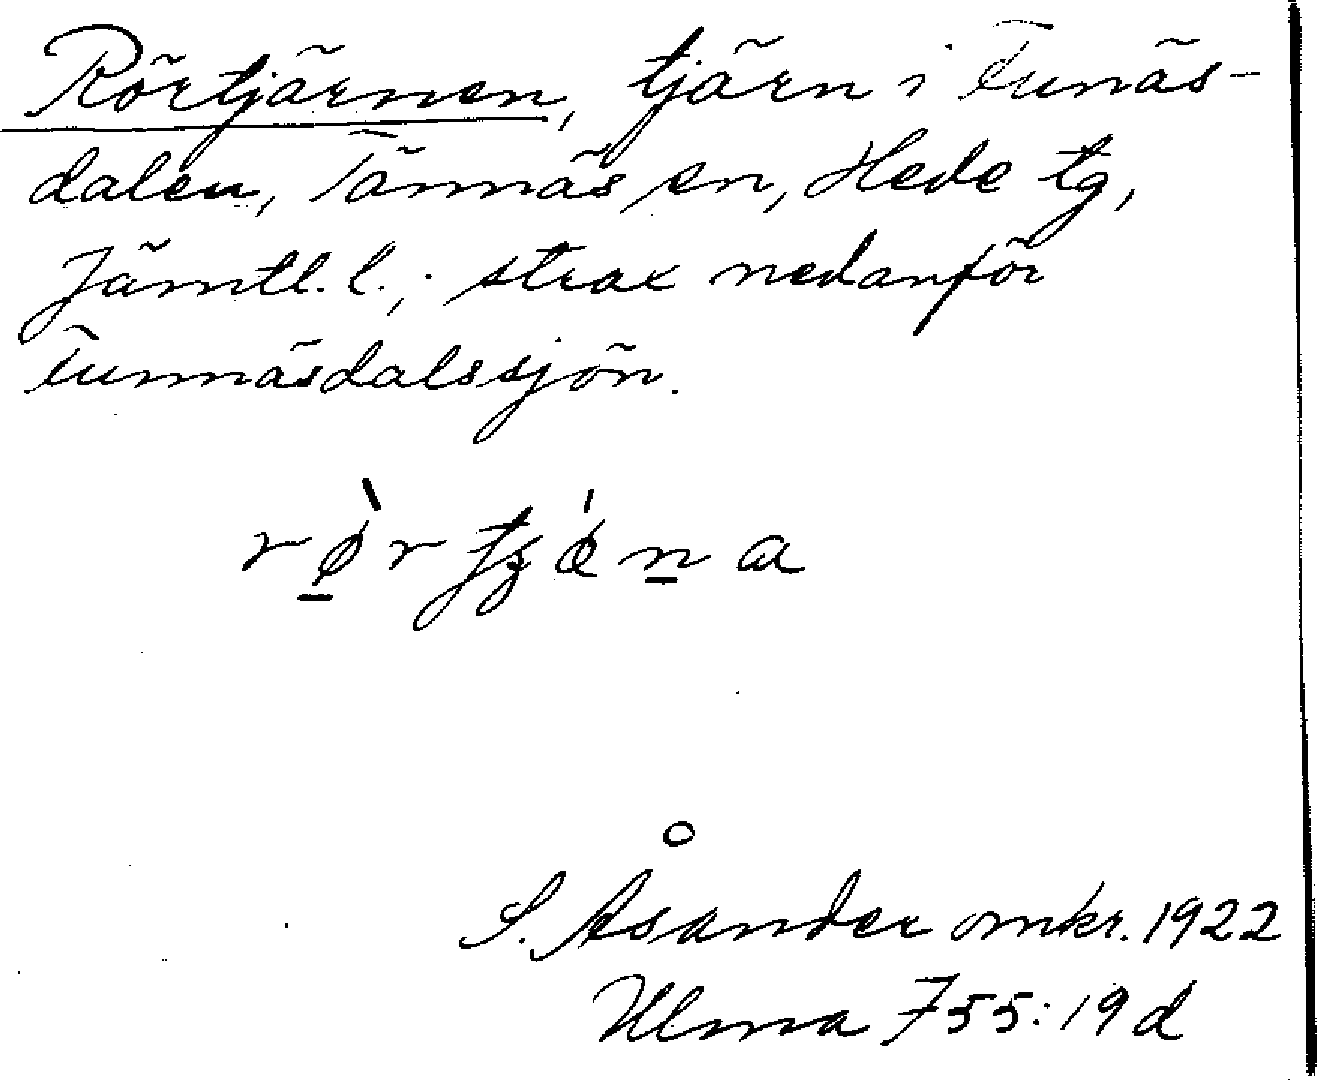 Rörtjärnen, tjärn i Funäs-
dalen, Tännäs sn, Hede tg,
Jämtl. l.; strax nedanför
Funnäsdalssjön.
S. Åsander omkr. 1922
Ulma 755:19 d